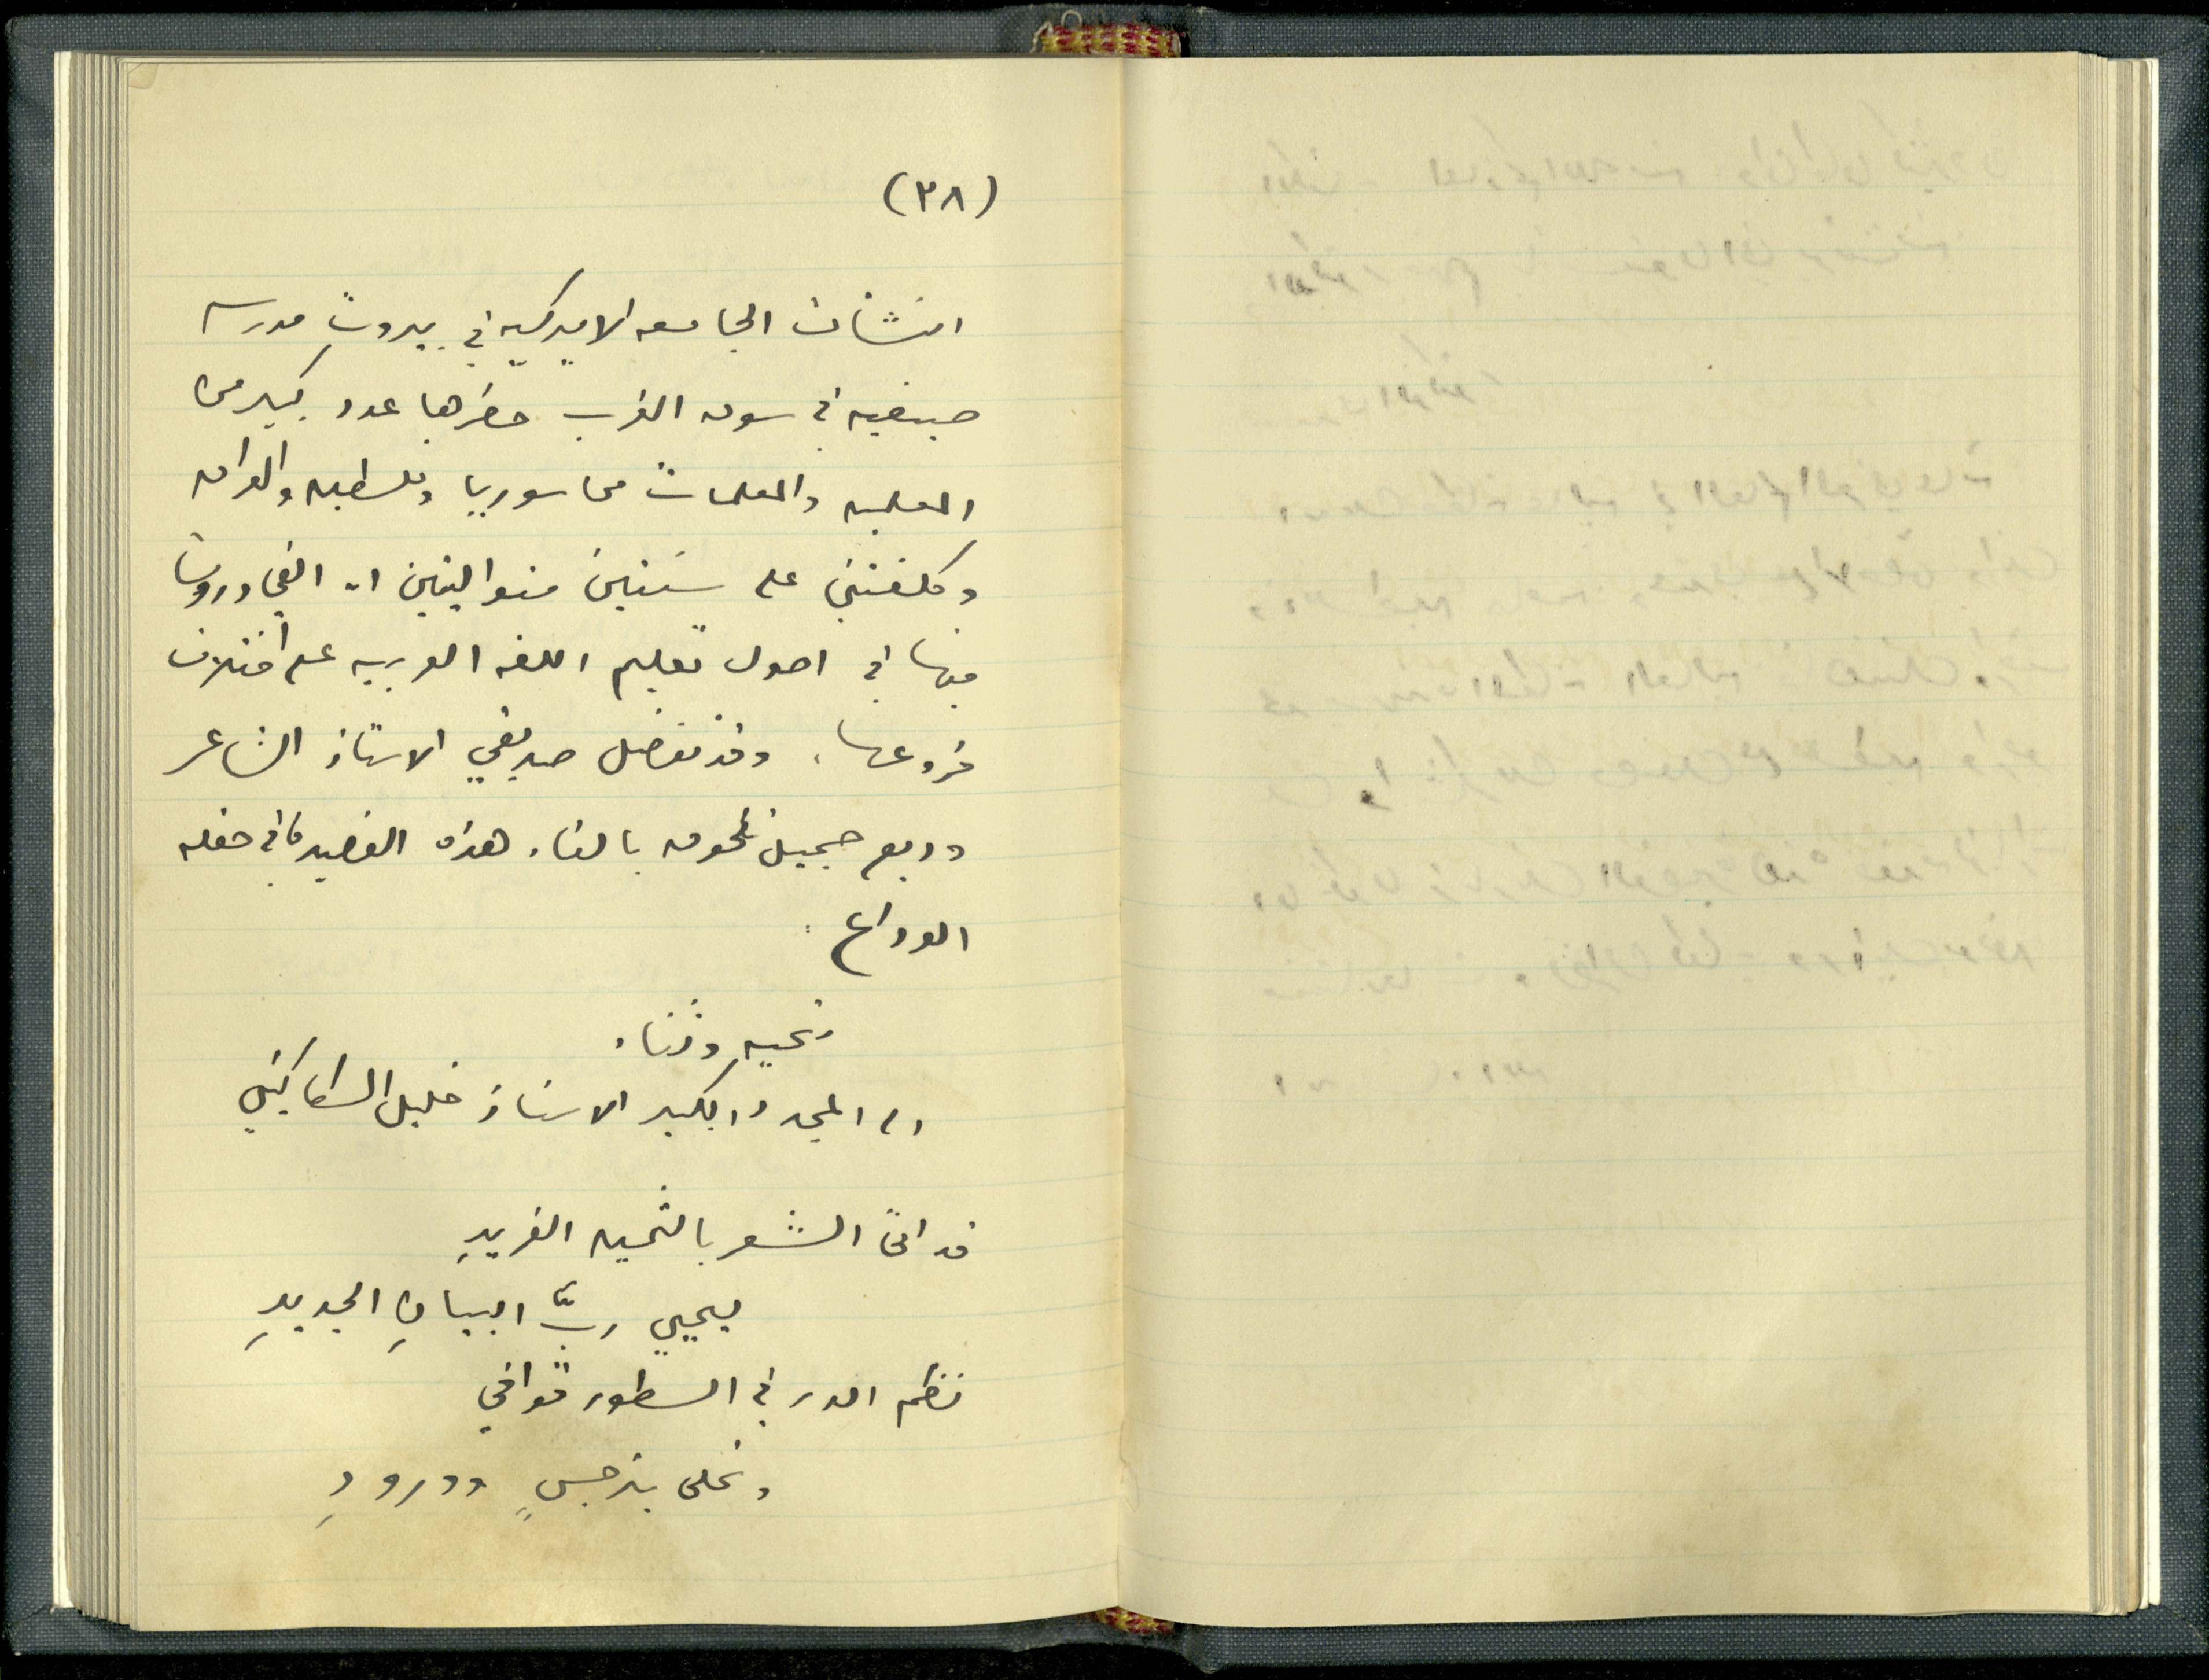 (٣٨)
انشأت الجامعه الاميركيه في بيروت مدرسه
صيفيه في سوق الغرب حضرها عدد كبير من
المعلمين والمعلمات من سوريا وفلسطين والعراق
وكلفتني على سنتين متواليتين ان القي دروسا
فيها في اصول تعليم اللغه العربيه على اختلاف
فروعها. وقد تفضل صديقي الاستاذ الشاعر
وديع جميل بالقاء هذه القصيده في حفله
الوداع:
تحيه وثناء
الى المجدد الكبير الاستاذ خليل السكاكيني
قد اتى الشعر بالتحيه الفريدِ
يحيي ربَّ البيانِ الجديدِ
نظم الدر في السطور قوافي
وتحلى بنرجسٍ وورودِ